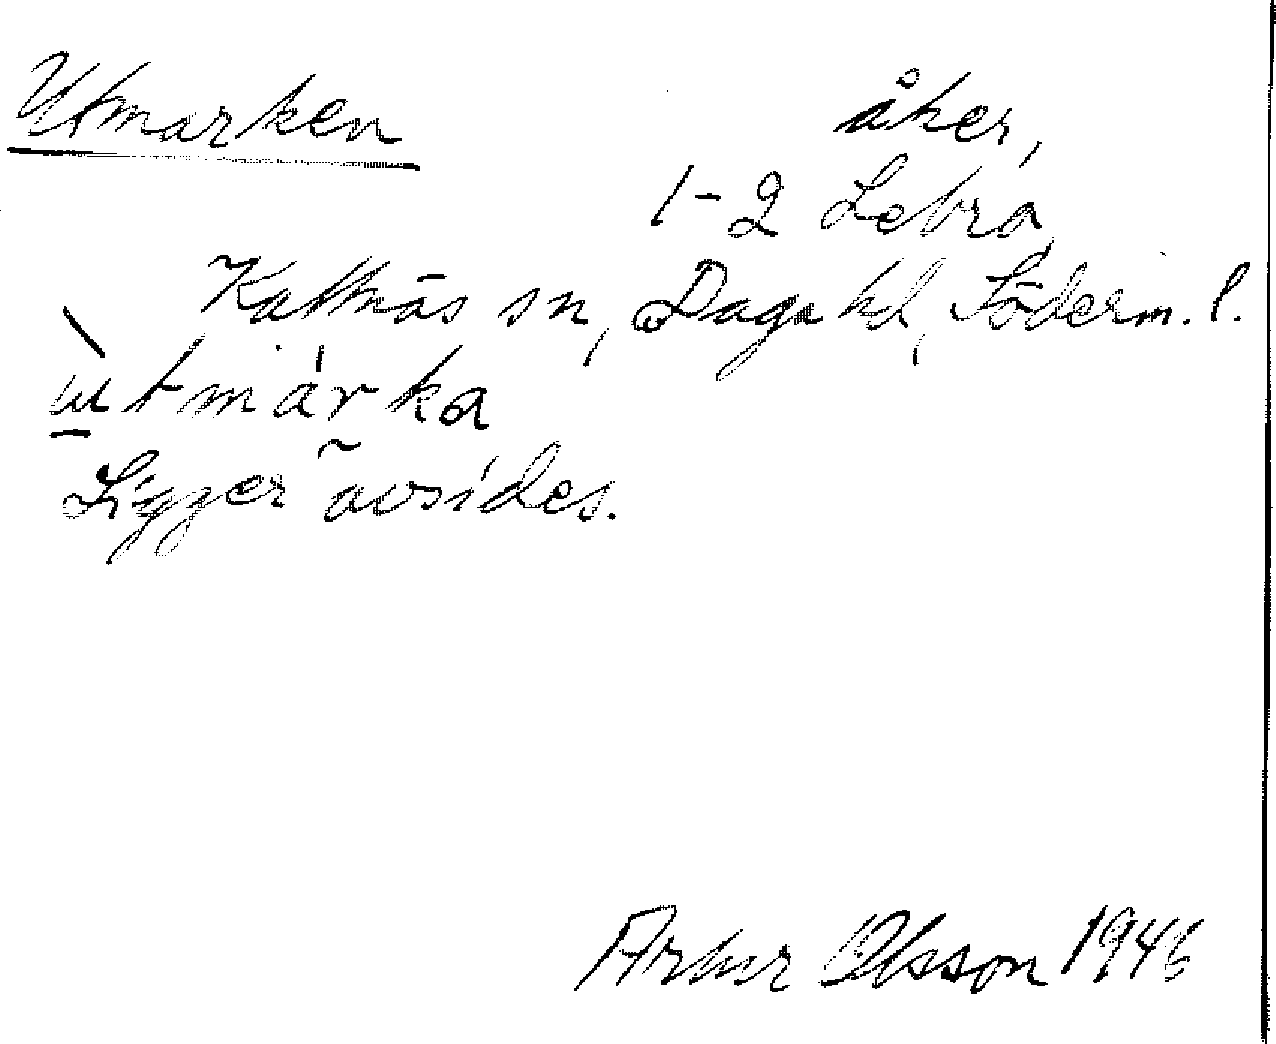 Utmarken
åker,
1-2 Lebro,
Kattnäs sn, Daga hd, Söderm. l.
ùtmárka
Ligger avsides.
Artur Olsson 1946